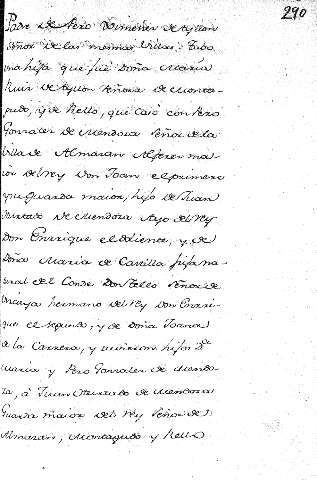 290
Padre de Pero Ximenez de Ayllon
Señor de las mesmas Villas. Tubo
una hija que fué Doña Maria
Ruiz de Ayllon Señora de Montea-
gudo, y de Rello, que casó con Pero
Gonzalez de Mendoza Señor de la
Villa de Almazan Alferez ma-
ior del rey Don Joan el primero
y su Guarda maior, hijo de Juan
Hurtado de Mendoza Ayo del Rey
Don Enrrique el doliente, y de
Doña Maria de Castilla hija na-
tural del Conde Don Tello Señor de
Vizcaya hermano del rey Don Enrri-
que el segundo, y de Doña Joana
de la Carrera, y uvieron hijos Dª
Maria y Pero Gonzalez de Mendo-
za, á Juan Hurtado de Mendoza
Guarda maior del Rey Señor de
Almazan, Monteagudo y Rello